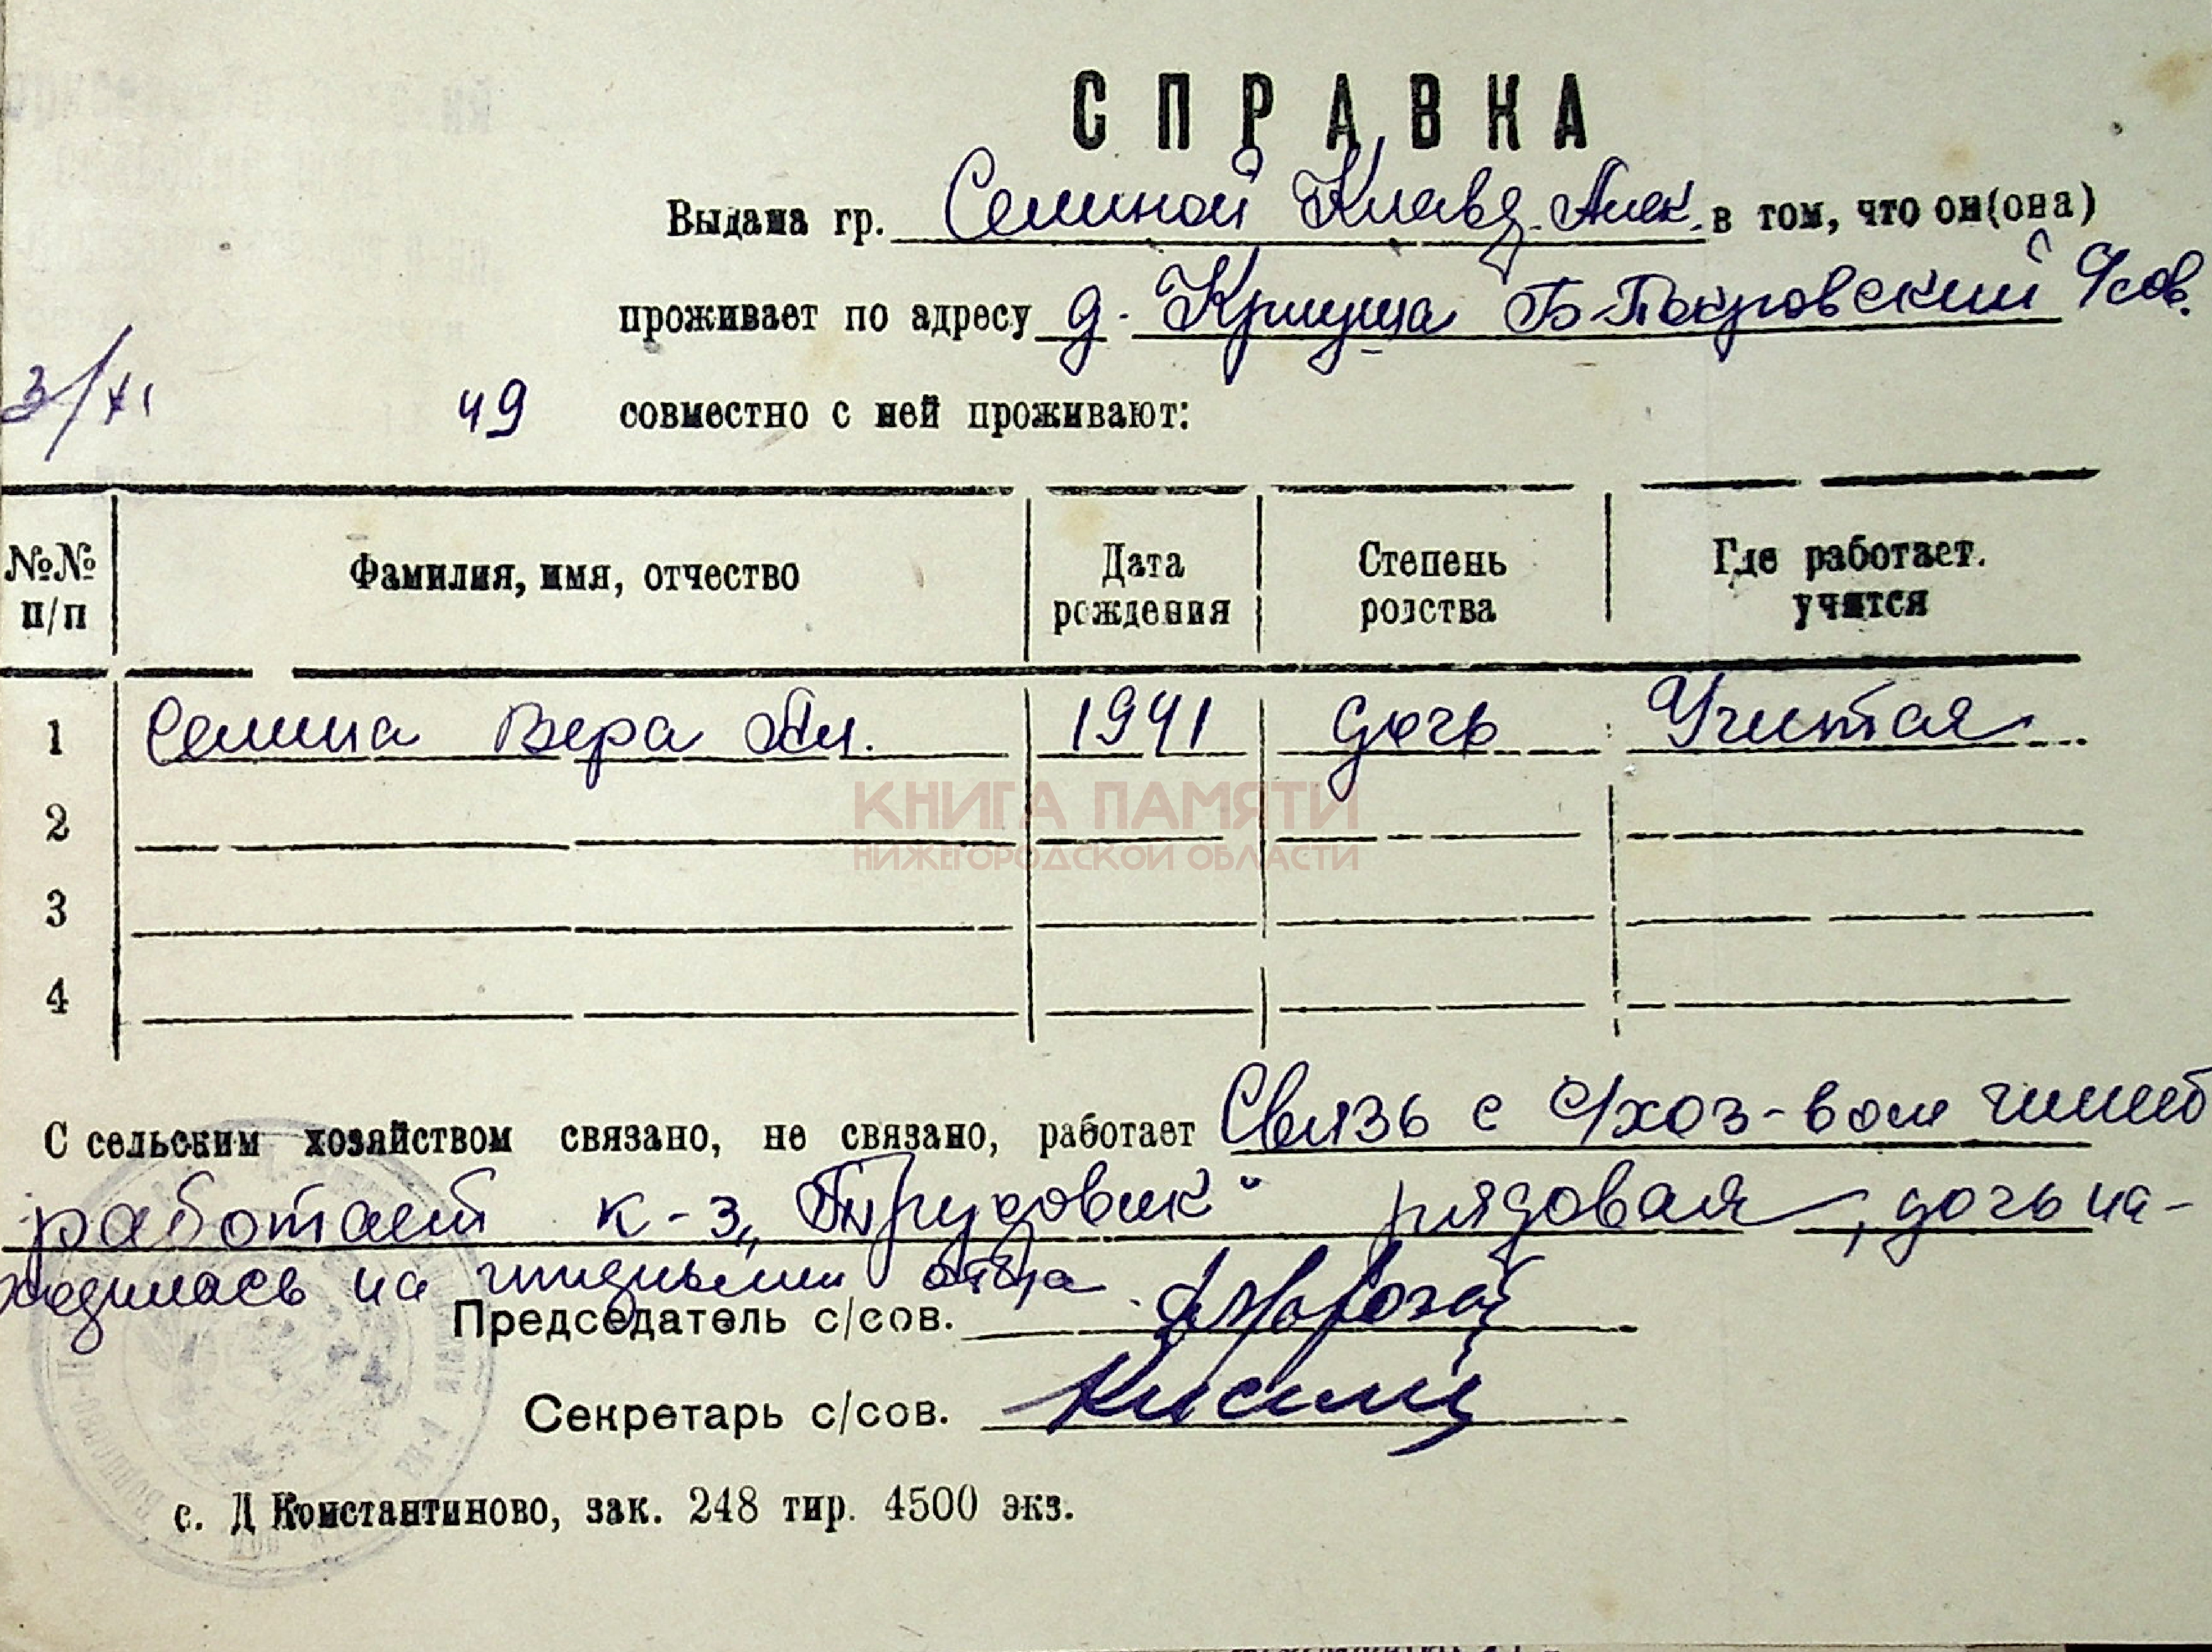 СПРАВКА
Выдана гр. Семиной Клавд. Алек. в том, что он(она)
проживает по адресу д. Криуша Б-Покровский с/сов.
3/XI 49 совместно с ней проживают:
№№ п/п Фамилия, имя, отчество Дата рождения Степень родства Где работает. учится
1 Семина Вера Ал. 1941 дочь Учитая
2
3
4
КНИГА ПАМЯТИ
НИЖЕГОРОДСКОЙ ОБЛАСТИ
С сельским хозяйством связано, не связано, работает Связь с с/хоз-вом имеет
работает к-з „Трудовик“ рядовая, дочь на-
ходилась на иждивении отца
Председатель с/сов.
Секретарь с/сов.
с. Д Константиново, зак. 248 тир. 4500 экз.